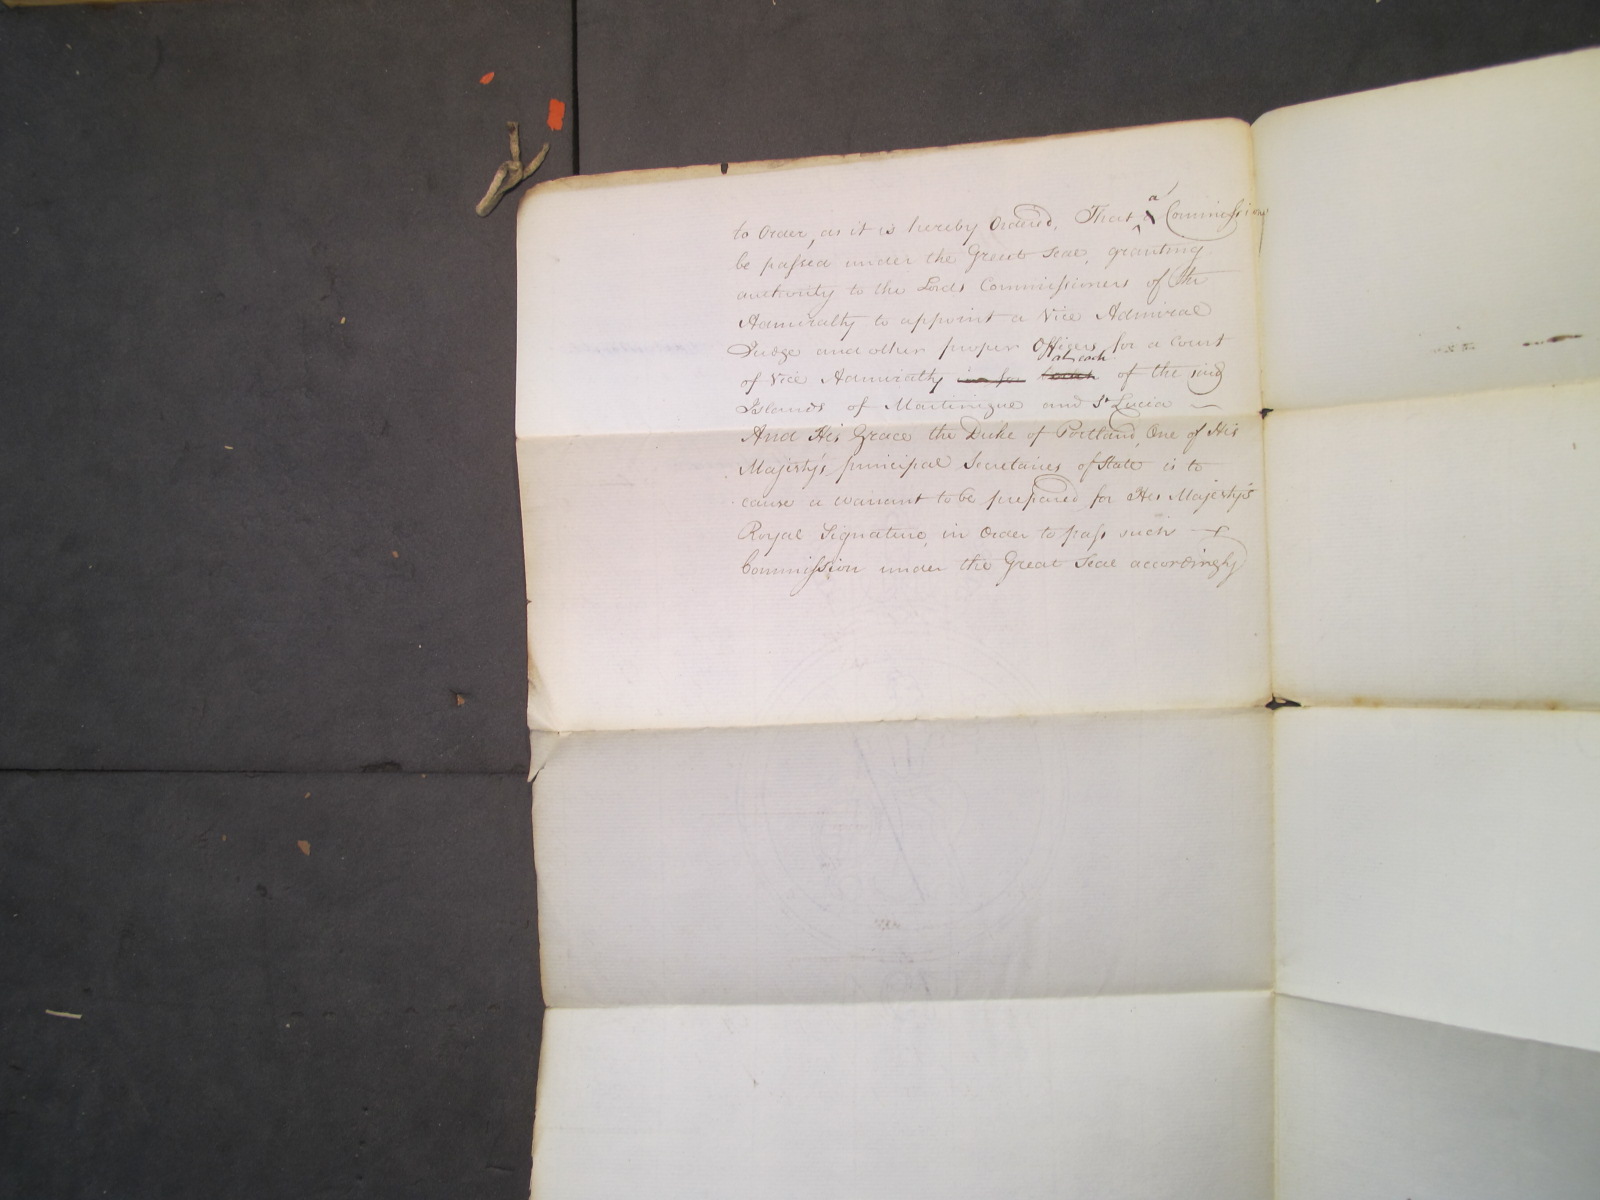 to Order, as it is hereby Ordered, That a Commission
be passed under the Great Seal, granting
authority to the Lords Commissioners of the
Admiralty to appoint a Vice Admiral
Judge and other proper Officers for a Court
of Vice Admiralty at each of the said
Islands of Martinique and St Lucia —
And His Grace the Duke of Portland, One of His
Majesty's principal Secretaries of State is to
cause a warrant to be prepared for His Majesty's
Royal Signature, in Order to pass such —
Commission under the Great Seal accordingly